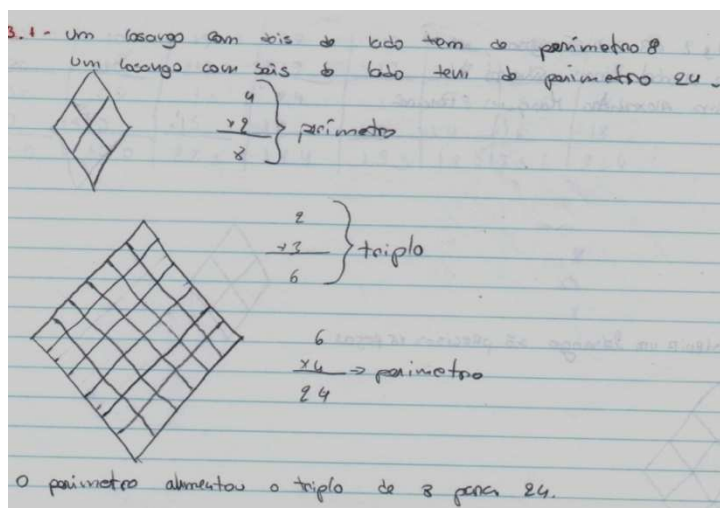 3.1- Um losango com dois de lado tem de perimetro 8
Um losango com seis de lado tem de perimetro 24.
4
x2
8
perimetro
2
x3
6
triplo
6
x4 → perimetro
24
O perimetro almentou o triplo de 8 para 24.